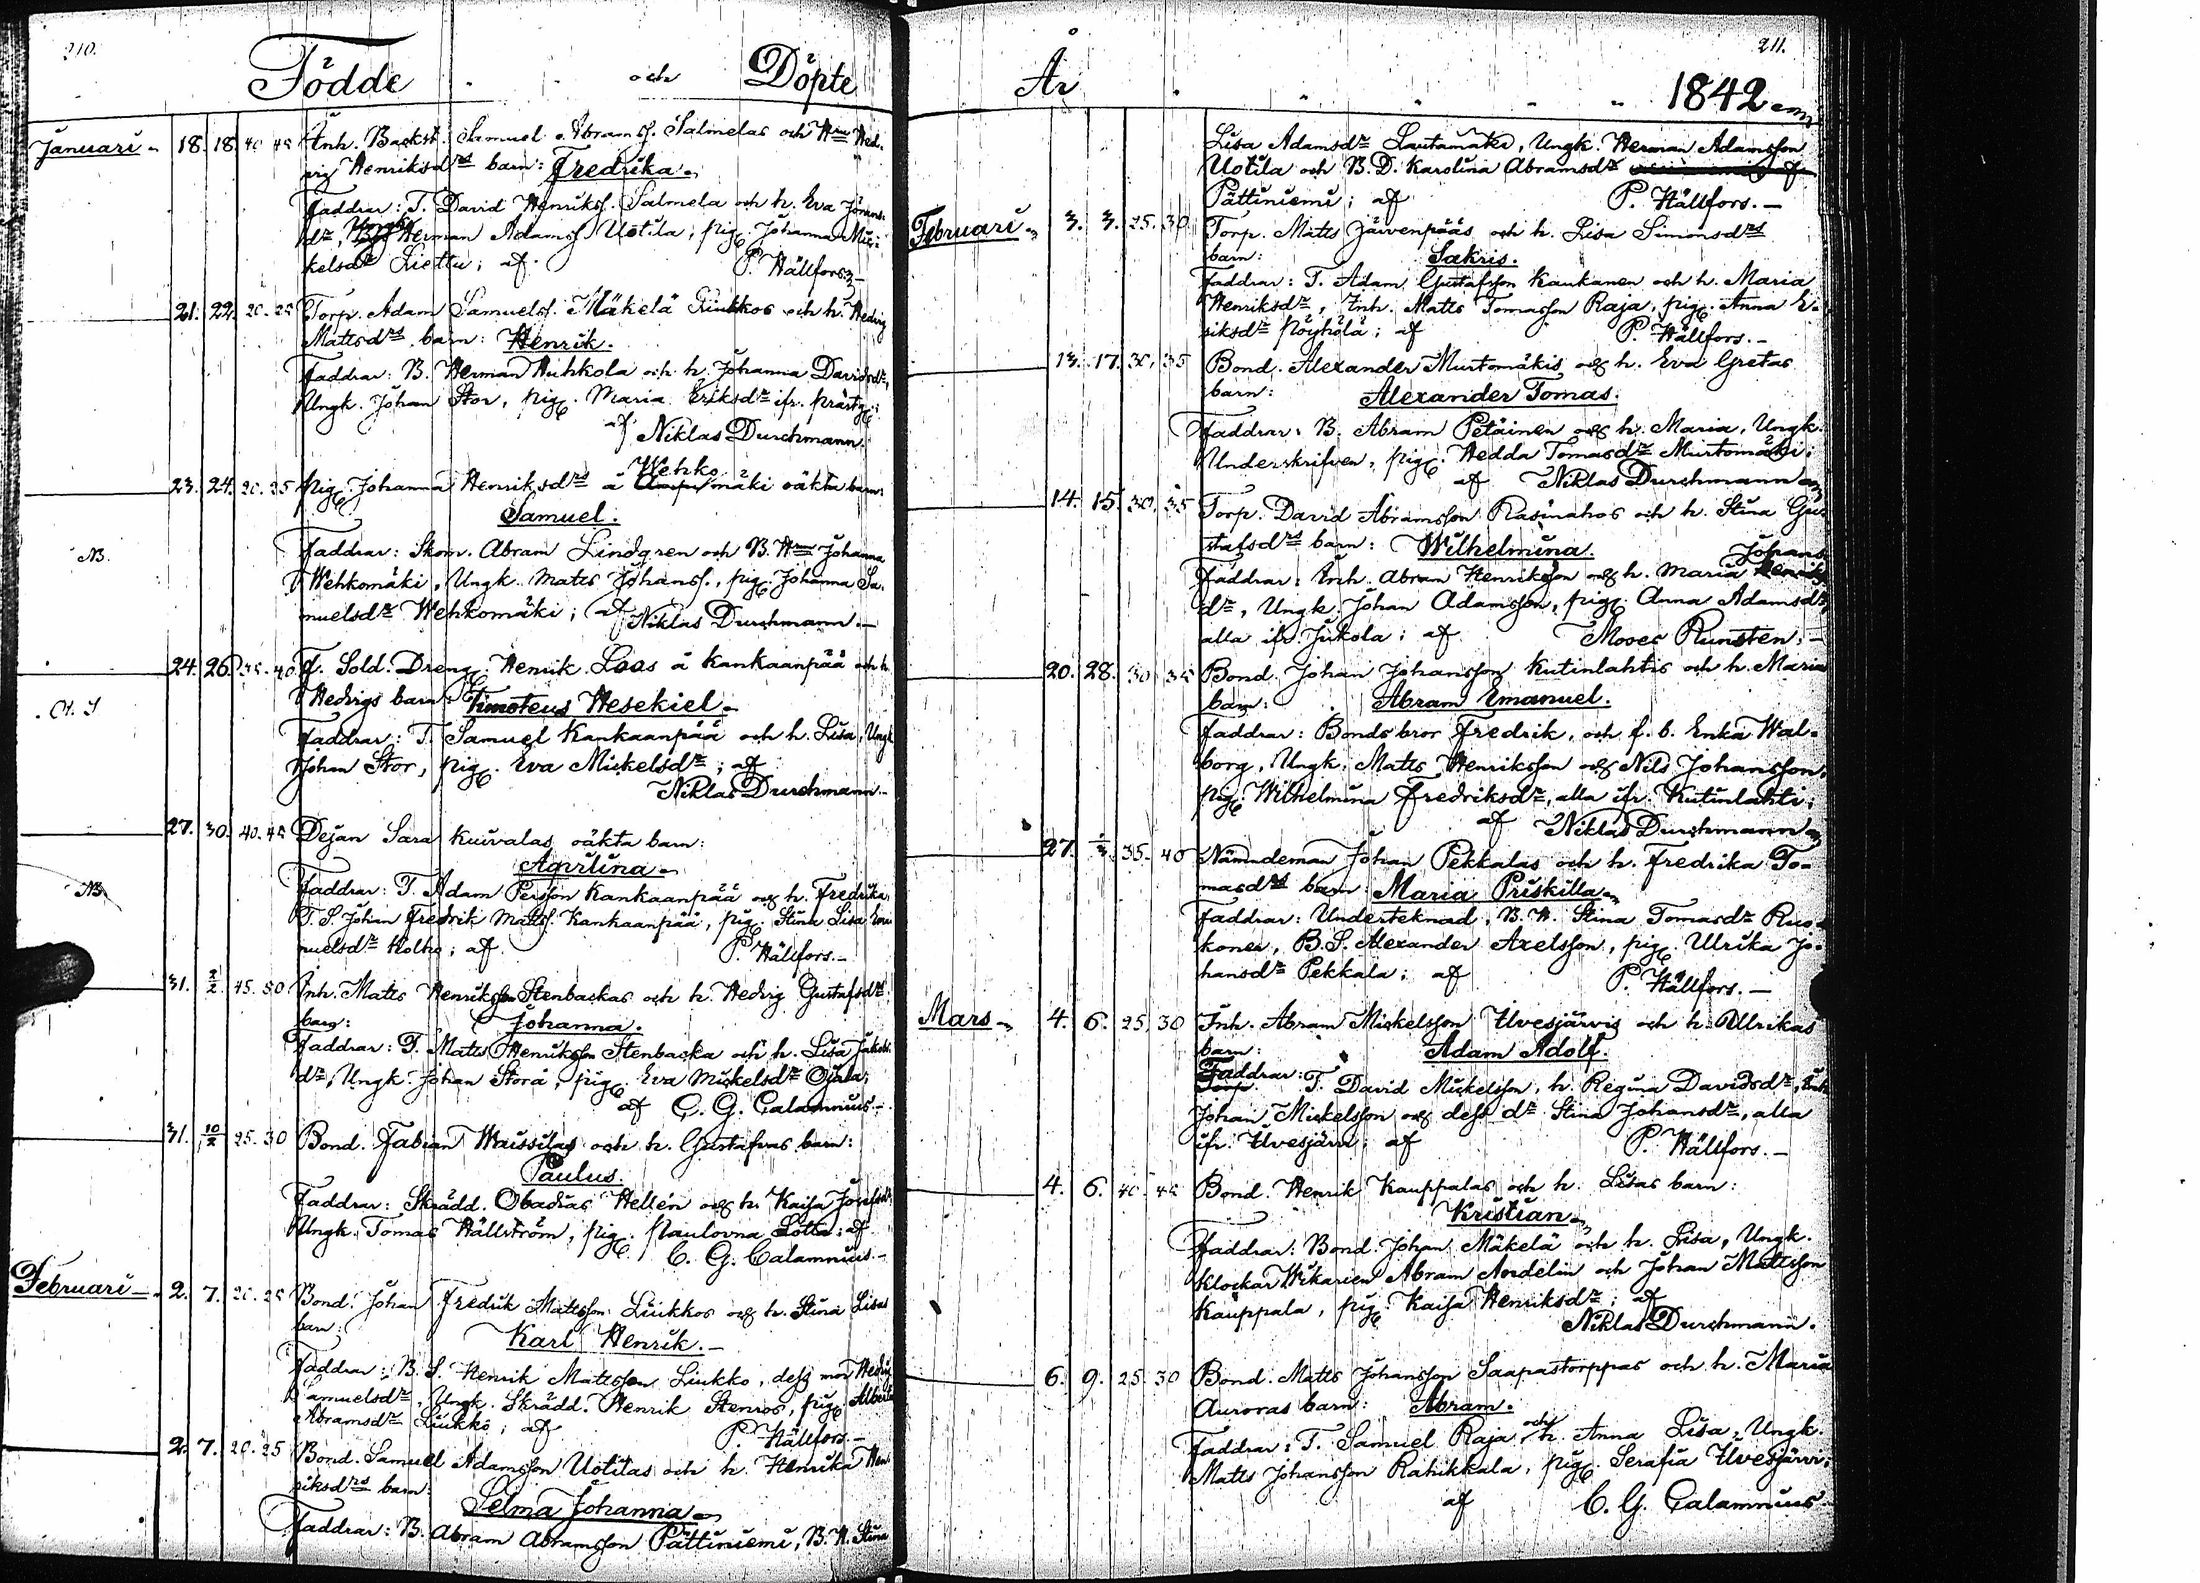 210.
Födde och Döpte
Januari 18. 18. 40 45 Inh. Backst. Samuel Abramsf. Salmelas och Hru Hed-
vig Henriksdrs barn: Fredrika.
Faddrar: T. David Henriksf. Salmela och h. Eva Johans-
dr, Herman Adamsf. Uotila, pig. Johanna Mic-
kelsdr Liettu; af P. Hällfors.-
21. 22. 20. 25 Torp. Adam Samuelsf. Mäkelä Liukkos och h. Hedvig
Mattsdrs barn: Henrik.
Faddrar: B. Herman Huhkola och h. Johanna Davidsdr,
Ungk. Johan Stor, pig. Maria Eriksdr ifr. prästg.;
af Niklas Durchmann.
Wehko
23. 24. 20. 25 pig. Johanna Henriksdrs å mäki oäkta barn:
Samuel.
NB. Faddrar: Skom. Abram Lindgren och B. Hru Johanna
Wehkomäki, Ungk. Matts Johansf., pig. Johanna Sa-
muelsdr Wehkomäki; af Niklas Durchmann.-
24. 26. 35. 40 f. Sold. Dreng. Henrik Laas å Kankaanpää och h.
Hedvigs barn: Timoteus Hesekiel.-
Faddrar: T. Samuel Kankaanpää och h. Lisa, Ungk.
Johan Stor, pig. Eva Mickelsdr; af
Niklas Durchmann.-
27. 30. 40. 45 Dejan Sara Kuivalas oäkta barn:
Aqvilina.-
NB. Faddrar: T. Adam Persson Kankaanpää och h. Fredrika,
T. S. Johan Fredrik Mattsf. Kankaanpää, pig. Stina Lisa Ema-
nuelsdr Kolho; af P. Hällfors.-
31. 2/2 45. 50 Inh. Matts Henriksson Stenbackas och h. Hedvig Gustafsdrs
barn: Johanna.
Faddrar: T. Matts Henriksson Stenbacka och h. Lisa Jakobs-
dr, Ungk. Johan Storå, pig. Eva Mickelsdr Ojala;
af C. G. Calamnius.-
31. 10/2 25. 30 Bond. Fabian Waissilas och h. Gustafvas barn:
Paulus.
Faddrar: Skrädd. Obadias Hellén och h. Kaisa Josefsdr,
Ungk. Tomas Hällström, pig. Paulovna Lotta; af
C. G. Calamnius.-
Februari 2. 7. 20. 25 Bond. Johan Fredrik Mattsson Liukkos och h. Stina Lisas
barn:
Karl Henrik.-
Faddrar: B. S. Henrik Mattsson Liukko, dess mor Hedvig
Samuelsdr, Ungk. Skrädd. Henrik Stenros, pig. Alberta
Abramsdr Liukko; af P. Hällfors.-
2. 7. 20. 25 Bond. Samuel Adamsson Uotilas och h. Henrika Hen-
riksdrs barn:
Selma Johanna.-
Faddrar: B. Abram Abramsson Pättiniemi, B. H. Stina
211.
År 1842
Lisa Adamsdr Lautamäki, Ungk. Herman Adamsson
Uotila och B. D. Karolina Abramsdr
Pättiniemi; af P. Hällfors.-
Februari 3. 3. 25. 30 Torp. Matts Järvenpääs och h. Lisa Simonsdrs
barn: Sakris.
Faddrar: T. Adam Gustafsson Kaukanen och h. Maria
Henriksdr, Inh. Matts Tomasson Raja, pig. Anna E-
riksdr Pöyhölä; af P. Hällfors.-
13. 17. 30. 35 Bond. Alexander Murtomäkis och h. Eva Gretas
barn: Alexander Tomas.
Faddrar: B. Abram Petäinen och h. Maria, Ungk.
Underskrifven, pig. Hedda Tomasdr Murtomäki;
af Niklas Durchmann
14. 15. 30. 35 Torp. David Abramsson Rasinahos och h. Stina Gu-
stafsdrs barn: Wilhelmina. Johans
Faddrar: Inh. Abram Henriksson och h. Maria
dr, Ungk. Johan Adamsson, pig. Anna Adamsdr,
alla ifr. Jukola; af Moses Runsten.-
20. 28. 30 35 Bond. Johan Johansson Kutinlahtis och h. Maria
barn: Abram Emanuel.
Faddrar: Bondsbror Fredrik, och f. b. Enka Wal-
borg, Ungk. Matts Henriksson och Nils Johansson,
pig. Wilhelmina Fredriksdr, alla ifr. Kutinlahti;
af Niklas Durchmann
27. 35. 40 Nämndeman Johan Pekkalas och h. Fredrika To-
masdrs barn: Maria Priskilla.
Faddrar: Underteknad, B. H. Stina Tomasdr Ruo-
konen, B. S. Alexander Axelsson, pig. Ulrika Jo-
hansdr Pekkala; af P. Hällfors.-
Mars 4. 6. 25. 30 Inh. Abram Mickelsson Ilvesjärvis och h. Ulrikas
barn: Adam Adolf.
Faddrar: T. David Mickelsson, h. Regina Davidsdr, Inh.
Johan Mickelsson och dess dr Stina Johansdr, alla
ifr. Ilvesjärvi; af P. Hällfors.-
4. 6. 40. 45 Bond. Henrik Kauppalas och h. Lisas barn:
Kristian.
Faddrar: Bond. Johan Mäkelä och h. Lisa, Ungk.
Klockar Wikarien Abram Nordelin och Johan Mattsson
Kauppala, pig. Kaisa Henriksdr; af
Niklas Durchmann.
6. 9. 25. 30 Bond. Matts Johansson Saapastorppas och h. Maria
Auroras barn: Abram.
Faddrar: T. Samuel Raja och h. Anna Lisa, Ungk.
Matts Johansson Rahikkala, pig. Serafia Ilvesjärvi;
af C. G. Calamnius.